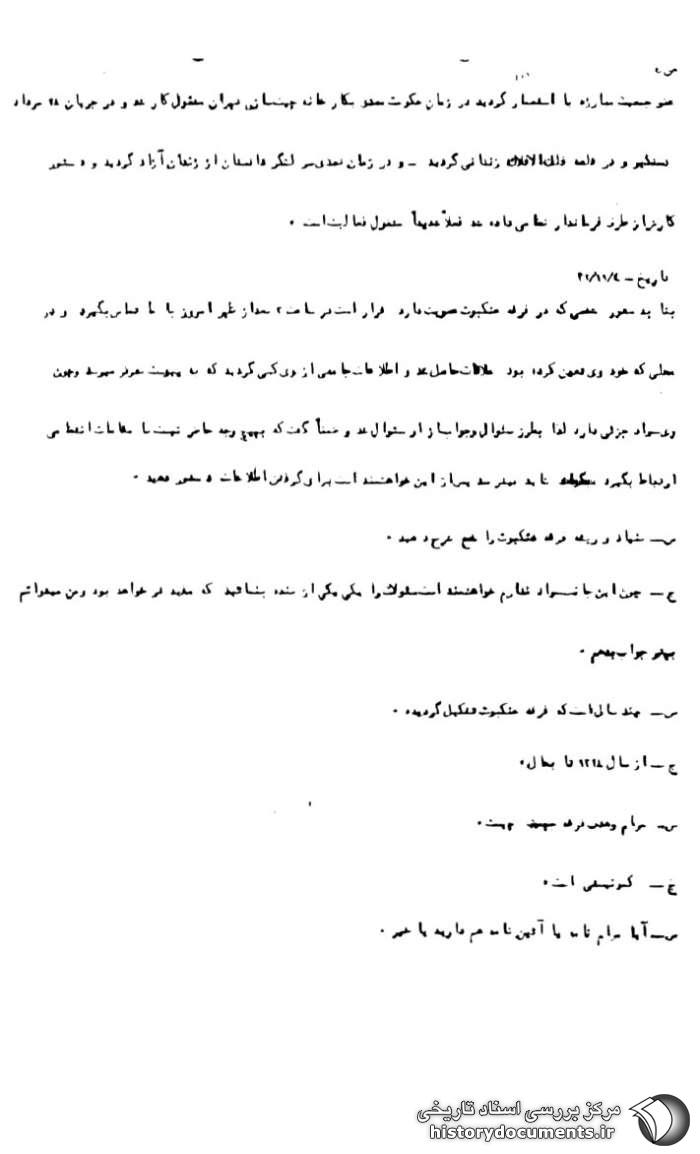 عضو جمعیت مبارزه با استعمار گردید در زمان حکومت مصدق بکار خانه چیتسازی تهران مشغول کار شد و در جریان ۲۸ مرداد
دستگیر و در قلعه فلک‌الافلاک زندانی گردید - و در زمان تصدی سر لشگر دادستان از زندان آزاد گردید و دستور
کارش از طرف فرماندار نظامی داده شد فعلاً شدیداً مشغول فعالیت است ۰
تاریخ -
بنا بدستور شخصی که در فرقه عنکبوت عضویت دارد قرار است در ساعت ۲ بعداز ظهر امروز با ما تماس بگیرد و در
محلی که خود وی تعیین کرده بود ملاقات حاصل شد و اطلاعات جامعی از وی کسب گردید که به پیوست بعرض میرسد و چون
وی سواد جزئی دارد لذا بطرز سئوال و جواب از او سئوال شد و ضمناً گفت که بهیچ وجه حاضر نیست با مقامات انتظامی
ارتباط بگیرد پس از این خواهشمند است برای گرفتن اطلاعات دستور دهید ۰
س - بنیاد و ریشه فرقه عنکبوت را شرح دهید ۰
ج - چون این جانب سواد ندارم خواهشمند است سئوالات را یکی یکی از بنده بنمائید که مفید تر خواهد بود ومن میتوانم
بهتر جواب بدهم ۰
س - چند سال است که فرقه عنکبوت تشکیل گردیده ۰
ج - از سال تا بحال ۰
س - مرام وهدف فرقه چیست ۰
ج - کمونیستی است ۰
س - آیا مرام نامه یا آئین نامه هم دارید یا خیر ۰
مرکز بررسی اسناد تاریخی
historydocuments.ir